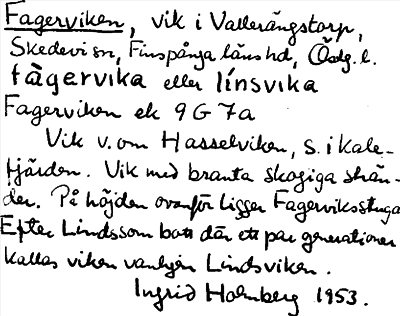 Fagerviken, vik i Vallerängstorp,
Skedevi sn, Finspånga läns hd, Östg. l.
fàgervika eller línsvika
Fagerviken ek 9 G 7a
Vik v. om Hasselviken, S. i Kale-
fjärden. Vik med branta skogiga strän-
der. På höjden ovanför ligger Fagerviksstuga
Efter Lindssom bott där ett par generationer
kallas viken vanligen Lindsviken.
Ingrid Holmberg 1953.